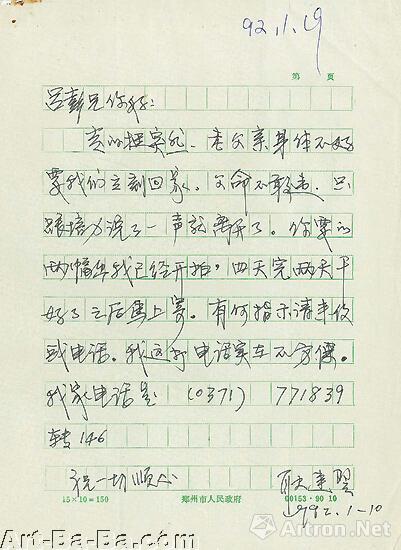 92.1.19
第 页
吕彭兄你好:
真的挺突然、老父亲身体不好
要我们立刻回家。父命不敢违,只
跟培力说了一声就离开了。你要的
两幅 我已经开 ,四天完两天干
好了之后马上寄。有何指示请来信
或电话。我这打电话实在不方便。
我家电话是 (0371) 771839
转146
祝一切顺心
耿建翌
15×10=150 郑州市人民政府 00153·90.10
1992.1-10
Art-Ba-Ba.com
Artron.Net